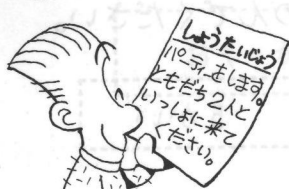 しょうたいじょう
パーティをします。
ともだち2人と
いっしょに来て
ください。